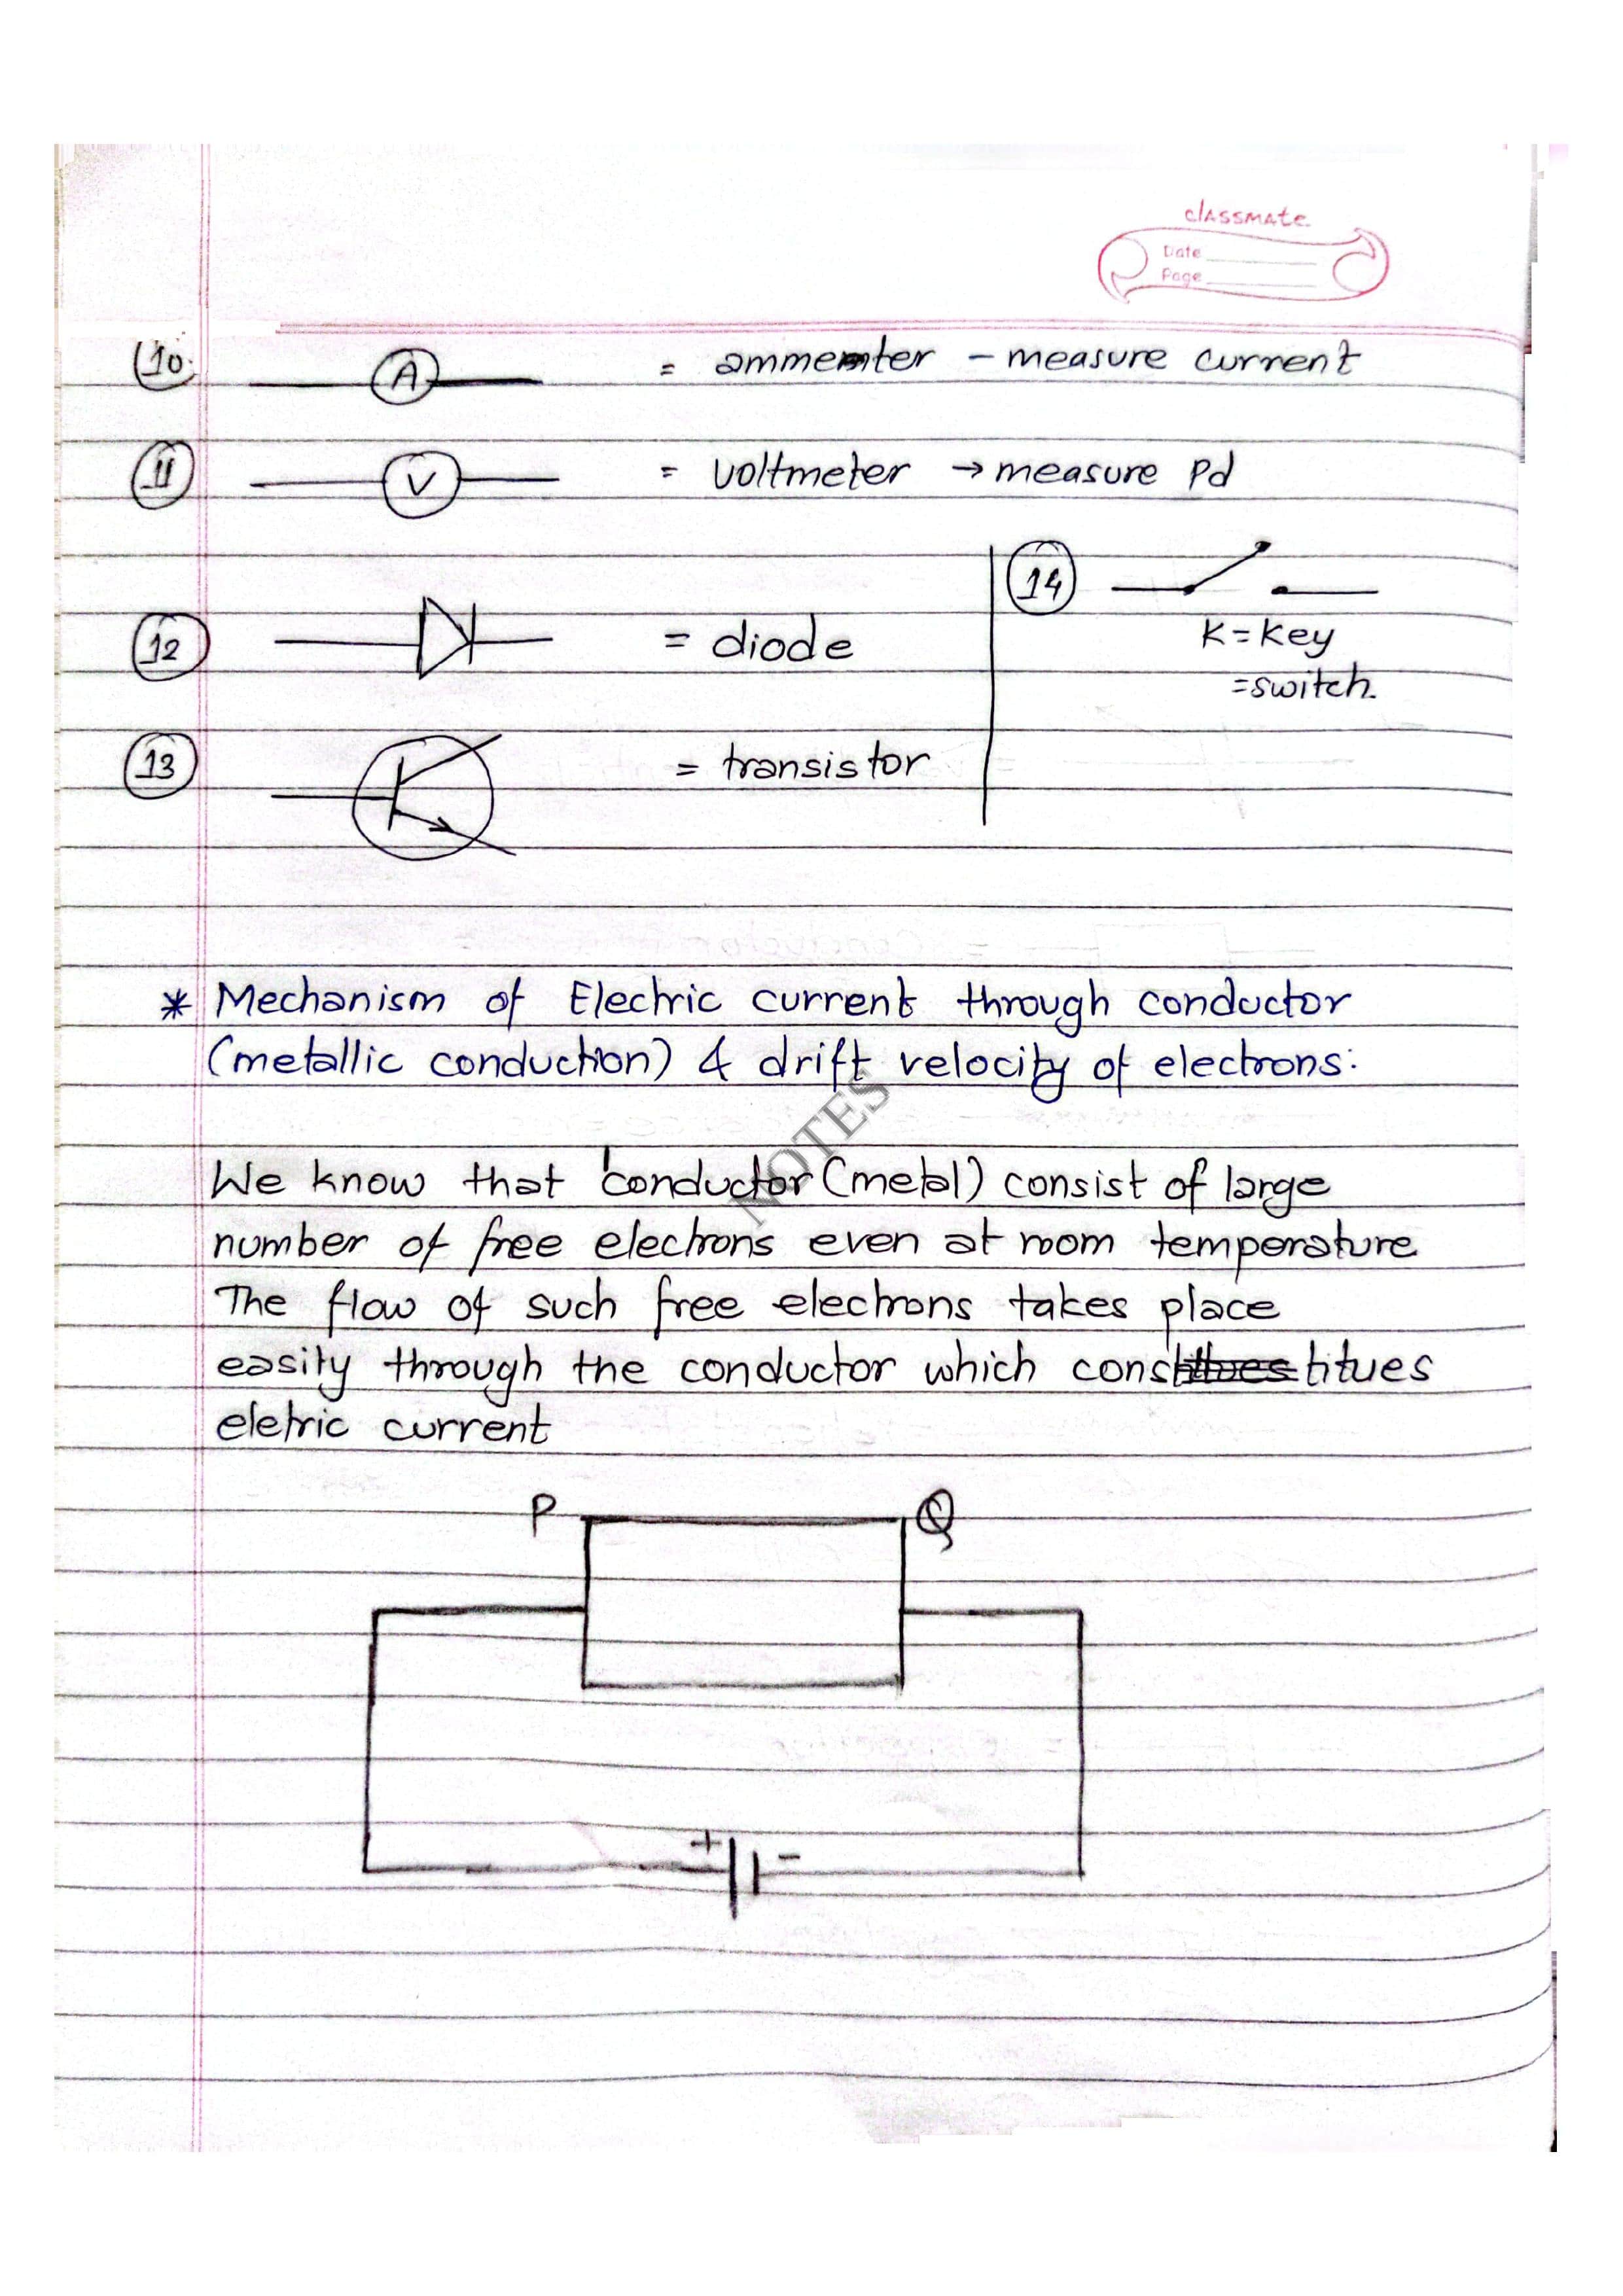 classmate
Date
Page
10. A = ammemter - measure current
11 V = voltmeter → measure Pd
12 = diode
14
K = key
= switch.
13 = transistor
* Mechanism of Electric current through conductor
(metallic conduction) & drift velocity of electrons:
NOTES
We know that conductor (metal) consist of large
number of free electrons even at room temperature
The flow of such free electrons takes place
easily through the conductor which constitues
eletric current
P Q
+ -